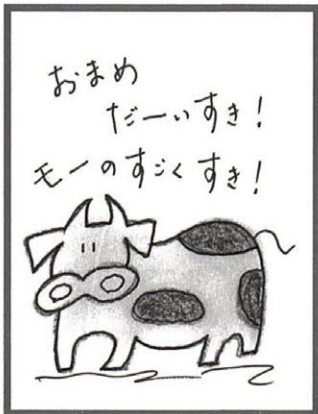 おまめ
だーいすき!
モーのすごくすき!